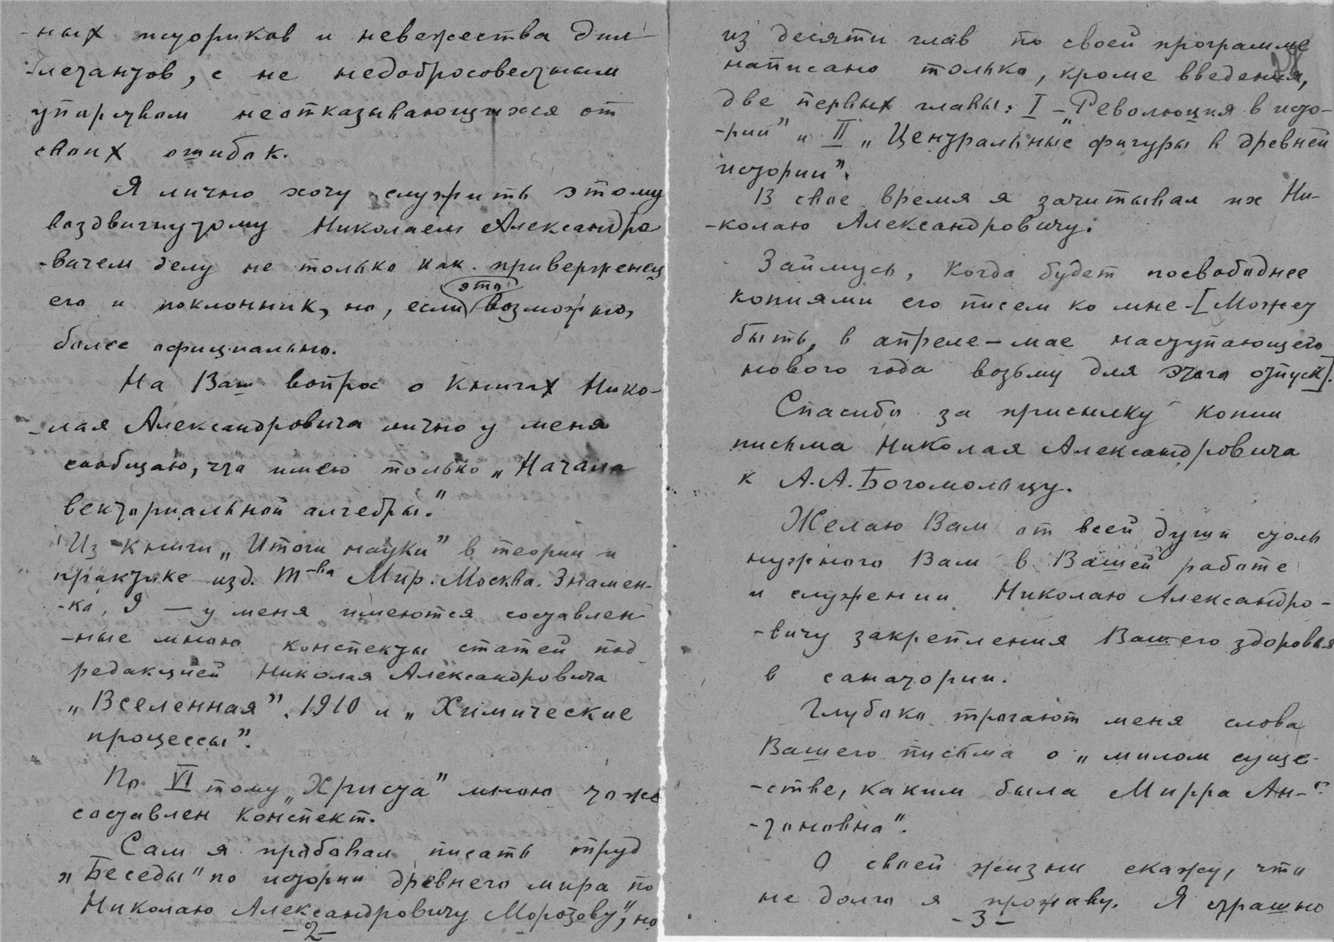 -ных историков и невежества дил-
летантов, с не недобросовестным
упорством неотказывающихся от
своих ошибок.
Я лично хочу служить этому
воздвигнутому Николаем Александро-
-вичем делу не только как приверженец
его и поклонник, но, если это возможно,
более официально.
На Ваш вопрос о книгах Нико-
-лая Александровича лично у меня
сообщаю, что имею только „Начала
векториальной алгебры."
Из книги „Итоги науки" в теории и
практике изд. т-ва Мир. Москва. Знамен-
-ка, 9 — у меня имеются составлен-
-ные мною конспекты статей под
редакцией Николая Александровича
„Вселенная". 1910 и „Химические
процессы".
По VI тому „Христа" мною тоже
составлен конспект.
Сам я пробовал писать труд
„Беседы" по истории древнего мира по
Николаю Александровичу Морозову", но
-2-
28
из десяти глав по своей программе
написано только, кроме введения,
две первых главы: I - „Революция в исто-
-рии" и II „Центральные фигуры в древней
истории".
В свое время я зачитывал их Ни-
-колаю Александровичу.
Займусь, когда будет посвободнее
копиями его писем ко мне. [Может
быть, в апреле-мае наступающего
нового года возьму для этого отпуск].
Спасибо за присылку копии
письма Николая Александровича
к А.А. Богомольцу.
Желаю Вам от всей души столь
нужного Вам в Вашей работе
и служении Николаю Александро-
-вичу закрепления Вашего здоровья
в санатории.
Глубоко трогают меня слова
Вашего письма о „милом суще-
-стве, каким была Мирра Ан-"
-тоновна".
О своей жизни скажу, что
не долго я проживу. Я страшно
-3-